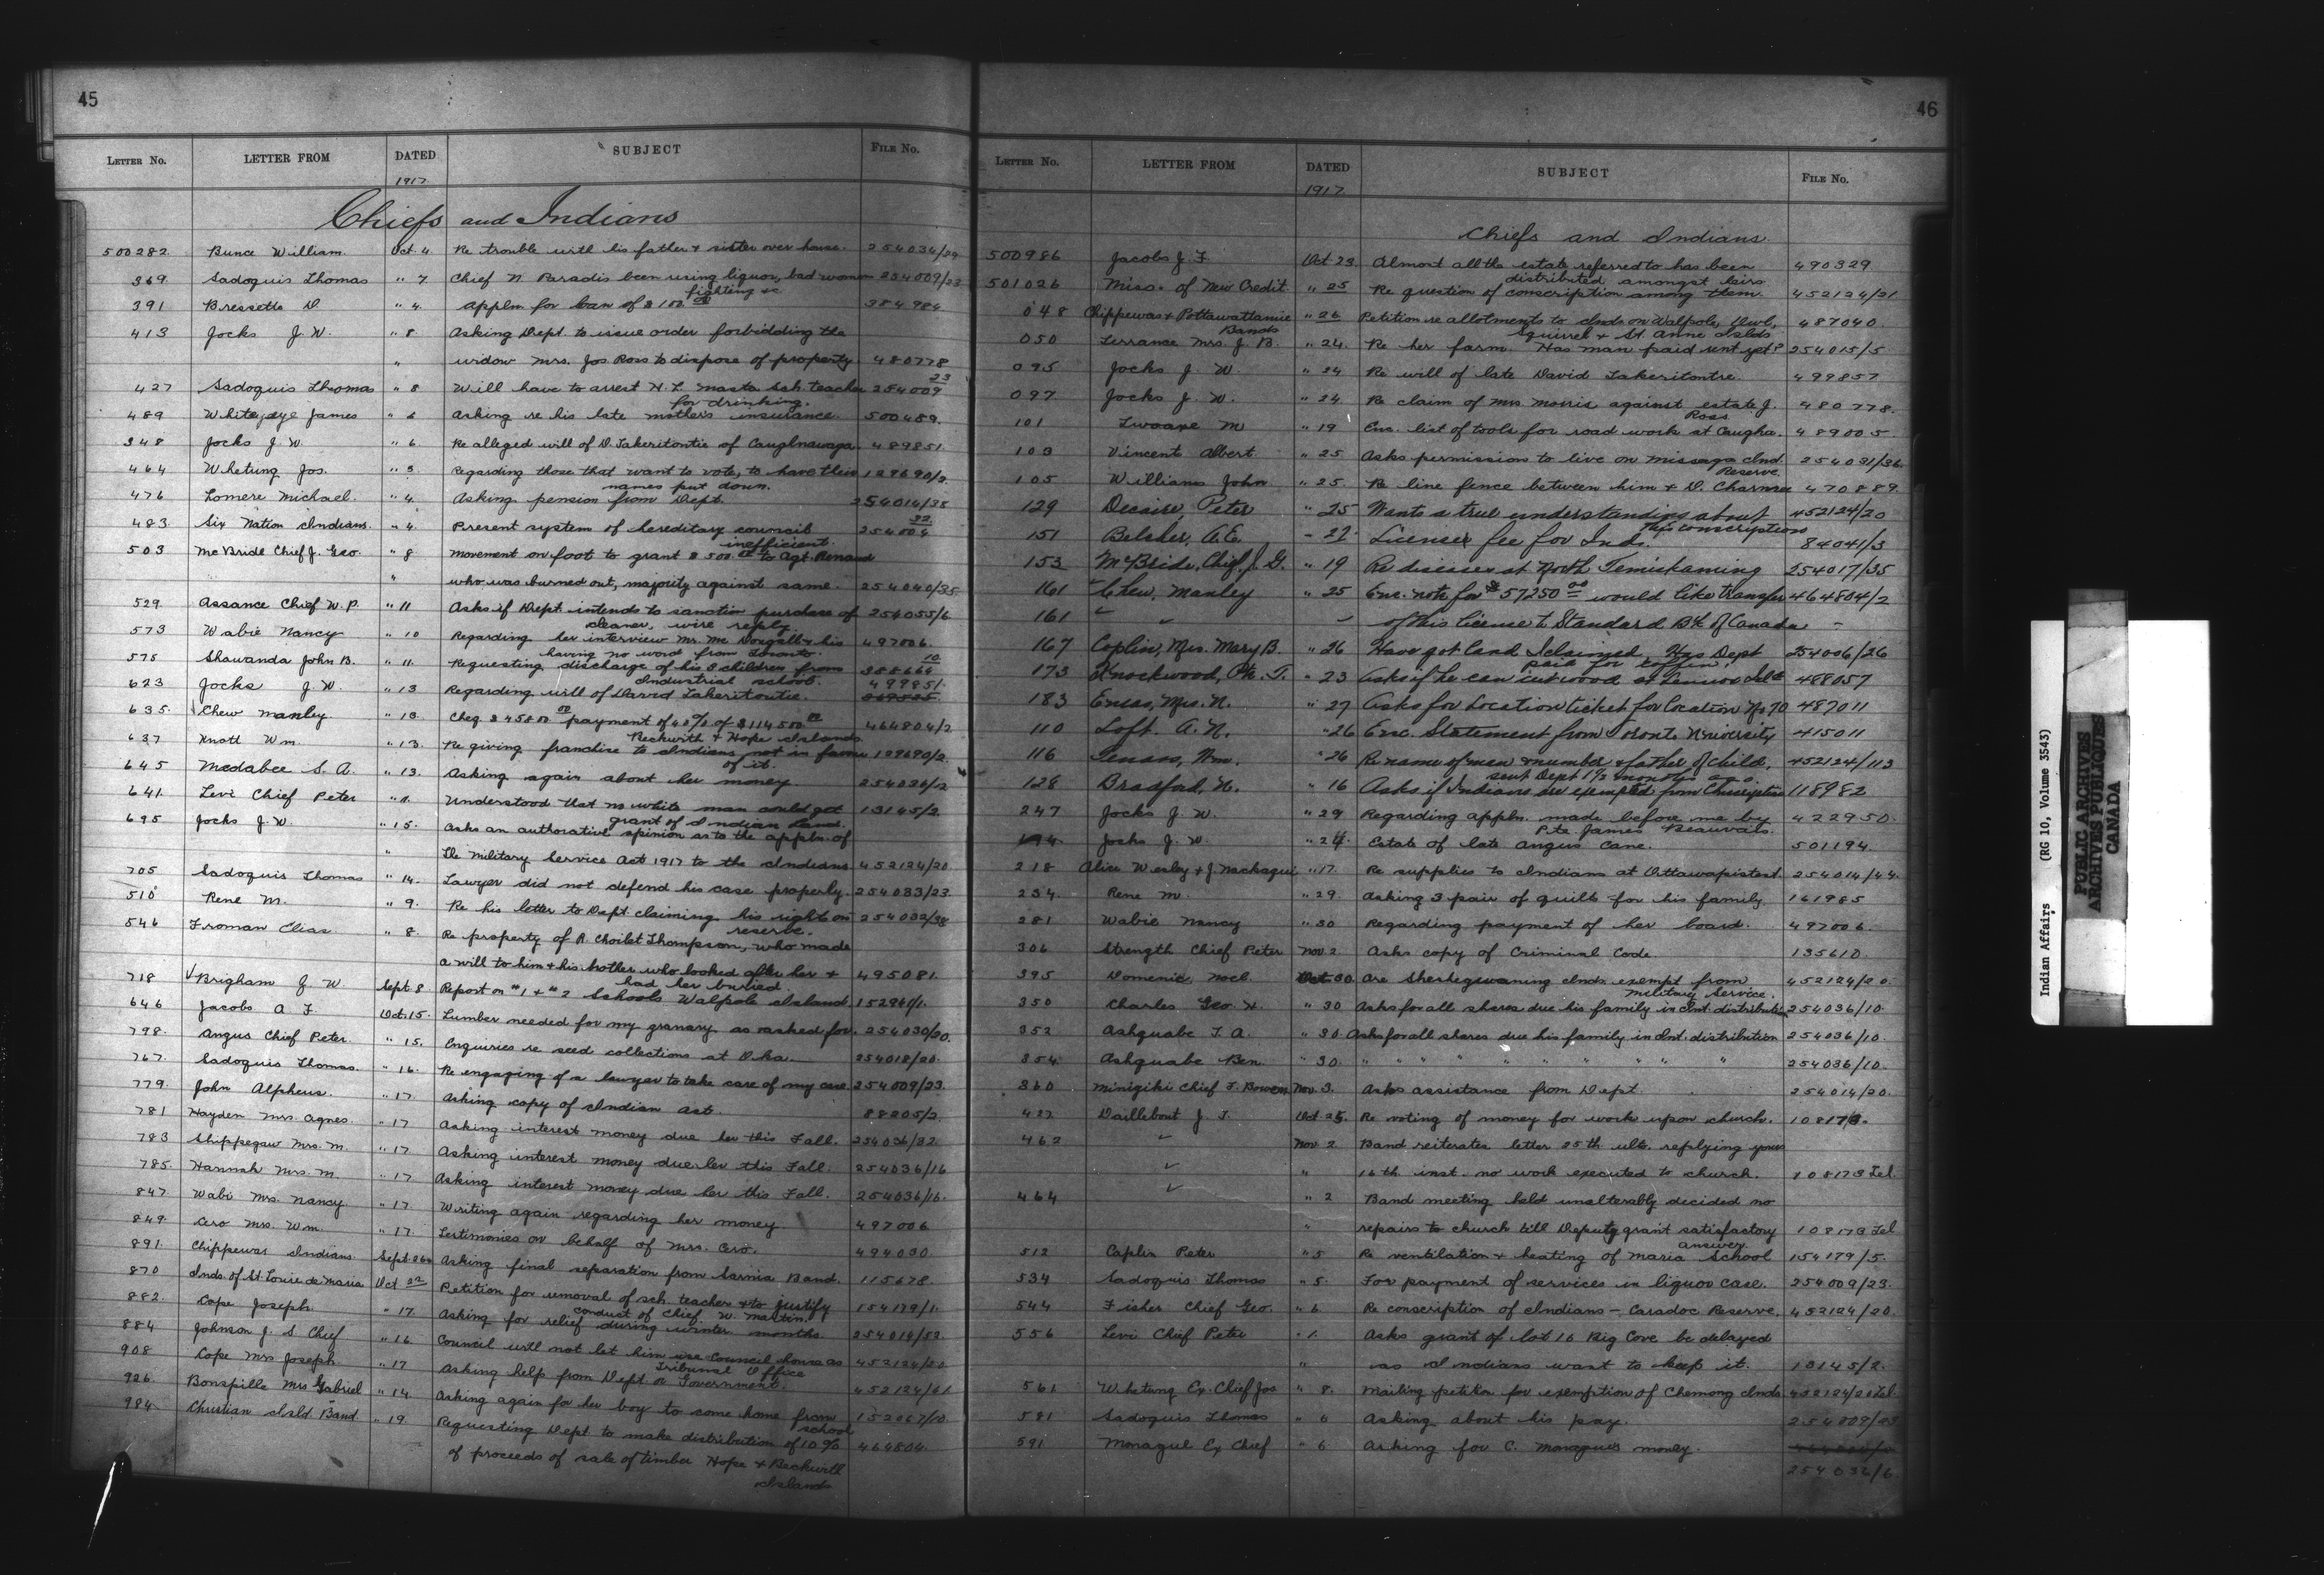 45
LETTER No. LETTER FROM DATED SUBJECT FILE No.
1917
Chiefs and Indians
500282. Bunce William. Oct. 4 Re trouble with his father & sister over house. 254034/29
369. Sadoquis Thomas " 7. Chief N. Paradis been using liquor, bad women 254009/23
fighting &c.
391 Bressette D " 4. Appln for loan of $ 150 00 384984
413 Jocks J. W. " 8. Asking Dept. to issue order forbidding the
" widow Mrs. Jos Ross to dispose of property. 480778
427 Sadoquis Thomas " 8 Will have to arrest H. L. Masta Sch. teacher 254009/23
for drinking.
489 Whiteyeye James " 6 Asking re his late mother's insurance. 500489.
348 Jocks J. W. " 6 Re alleged will of D. Takeritontie of Caughnawaga. 489851.
464 Whetung Jos. " 3. Regarding those that want to vote, to have their 129690/2.
names put down.
476 Lomere Michael. " 4. Asking pension from Dept. 254014/35
483. Six Nation Indians. " 4. Present system of hereditary councils 254004/22
inefficient.
503 McBride Chief J. Geo. " 8 Movement on foot to grant $ 500 00 to Agt. Renaud
" who was burned out, majority against same. 254040/35
529. Assance Chief W. P. " 11 Asks if Dept intends to sanction purchase of 254055/6
cleaner, wire reply.
573 Wabie Nancy " 10 Regarding her interview Mr. McDougall & his 497006.
having no word from Toronto.
575 Shawanda John B. " 11. Requesting discharge of his 3 children from 388664/10
Industrial school.
623 Jocks J. W. " 13 Regarding will of David Takeritontie. 499851.
635. Chew Manley " 13. Cheq $ 45800 00 payment of 40% of $ 114500 00 464804/2
Beckwith & Hope Islands
637 Knott Wm. " 13. Re giving franchise to Indians not in favour 129690/2.
of it.
645 Medabee S. A. " 13. Asking again about her money 254036/2
641. Levi Chief Peter " 1. Understood that no white man could get 13145/2.
grant of Indian Land.
695 Jocks J. W. " 15. Asks an authorative opinion as to the appln. of
" the Military Service Act 1917 to the Indians 452124/20
705 Sadoquis Thomas " 14. Lawyer did not defend his case properly. 254033/23.
510 Rene M. " 9. Re his letter to Dept claiming his right on 254032/38
reserve.
546 Froman Elias " 8. Re property of R. Thompson, who made
a will to him & his brother who looked after her & 495081.
had her buried.
718 √Brigham J. W. Sept. 8 Report on #1 & #2 Schools Walpole Island 152940/1.
646 Jacobs A F Oct. 15. Lumber needed for my granary as I asked for. 254030/20.
798. Angus Chief Peter. " 15. Enquiries re seed collections at Oka. 254018/20.
767. Sadoquis Thomas. " 16. Re engaging of a lawyer to take care of my case 254009/23.
779. John Alpheus. " 17. Asking copy of Indian act. 88205/2.
781 Hayden Mrs. Agnes. " 17 Asking interest money due her this Fall. 254036/32.
783 Shippegaw Mrs. M. " 17 Asking interest money due her this Fall. 254036/16
785. Hannah Mrs. M. " 17 Asking interest money due her this Fall. 254036/16.
847. Wabi Mrs. Nancy. " 17 Writing again regarding her money. 497006
849. Cero Mrs. Wm. " 17. Testimonies on behalf of Mrs. Cero. 494030
891. Chippewas Indians. Sept. 26 Asking final separation from Sarnia Band. 115678.
870 Inds. of St Louis de Maria Oct. 22 Petition for removal of sch. teacher & to justify 154179/1.
conduct of Chief W. Martin.
882. Cope Joseph. " 17. Asking for relief during winter months. 254019/52.
884 Johnson J. S Chief " 16. Council will not let him use Council house as 452124/20
Tribunal Office
908 Cope Mrs Joseph. " 17 Asking help from Dept or Government. 452124/61
926. Bonspille Mrs Gabriel " 14. Asking again for her boy to come home from 152067/10.
school
984. Christian Isld Band. " 19. Requesting Dept to make distribution of 10% 464804.
of proceeds of sale of timber Hope & Beckwith
Islands
46
LETTER No. LETTER FROM DATED SUBJECT FILE No.
1917.
Chiefs and Indians
500986 Jacobs J. F. Oct 23. Almost all the estate referred to has been 490329
distributed amongst heirs
501026 Miss. of New Credit " 25 Re question of conscription among them. 452124/21
048 Chippewas & Pottawattamie " 26 Petition re allotments to Inds on Walpole, 487040.
Bands Squirrel & St. Anne Islds.
050 Terrance Mrs. J. B. " 24. Re her farm. Has man paid rent yet? 254015/5
095 Jocks J. W. " 24 Re will of late David Takeritontre. 499857
097 Jocks J. W. " 24 Re claim of Mrs Morris against estate J. 480778.
Ross.
101 Twoaxe M " 19 Enc. list of tools for road work at Caugha. 489005.
103 Vincent Albert " 25 Asks permission to live on Missaga Ind. 254031/36.
Reserve.
105 Williams John " 25. Re line fence between him & D. 470889.
129 Decaire, Peter " 25 Wants a true understanding about 452124/20
this conscription
151 Belcher, A.E. " 22. License fee for Inds. 84041/3
153 McBride, Chief, J. G. " 19 Re diseases at North Temiskaming 254017/35
161 Chew, Manley " 25 Enc. note for $ 57250 00 would like transfer 464804/2
161 " " " of this license to Standard Bk of Canada "
167 Caplin, Mrs. Mary B. " 26 Have got land I claimed, Has Dept 254006/26
paid for coffin?
173 Knockwood, Pte. T. " 23 Asks if he can cut wood at Lennox Isld 488057
183 Eneas, Mrs. N. " 27 Asks for Location ticket for location No 70 487011
110 Loft. A. N. " 26 Enc. Statement from Toronto University 415011
116 Tenass, Wm. " 26 Re name of man & number & father of child, 452124/113
sent Dept 1½ months ago.
128 Bradford, N. " 16 Asks if Indians are exempted from Conscription 118982
247 Jocks J. W. " 29 Regarding appln. made before me by 422950.
Pte. James Beauvais.
194. Jocks J. W. " 24 Estate of late Angus Cane. 501194.
218 Alice Wesley & J Nackogie " 17. Re supplies to Indians at Attawapiscat. 254014/44.
234. Rene M. " 29. Asking 3 pair of quilts for his family. 161985
281 Wabie Nancy " 30 Regarding payment of her board. 497006.
306 Strength Chief Peter Nov. 2 Asks copy of Criminal Code 135610.
395 Domenic, Noel. Oct 30. Are Sheshegwaning Inds. exempt from 452124/20.
Military Service.
350 Charles Geo. H. " 30 Asks for all shares due his family in Int. distribution 254036/10.
352 Ashquabe T. A. " 30. Asks for all shares due his family in Int. distribution 254036/10.
354 Ashquabe Ben. " 30. " " " " " " " " " 254036/10.
360 Minigiki Chief F. Bowen Nov. 3. Asks assistance from Dept. 254014/20.
427 Daillebout J. T. Oct. 25. Re voting of money for work upon church. 108173.
462 " Nov. 2 Band reiterates letter 25th ulto. replying yours
" " 16th inst. no work executed to church. 108173 Tel.
464 " " 2 Band meeting held unalterably decided no
" repairs to church till Deputy grant satisfactory 108173 Tel
answer.
512 Caplin Peter " 5 Re ventilation & heating of Maria School 154179/5.
534 Sadoquis Thomas " 5. For payment of services in liquor case. 254009/23.
544 Fisher Chief Geo. " 6. Re conscription of Indians - Caradoc Reserve. 452124/20.
556 Levi Chief Peter " 1. Asks grant of lot 16 Big Cove be delayed
" as Indians want to keep it. 13145/2.
561 Whetung Ex. Chief Jos " 8. Mailing petition for exemption of Chemong Inds. 452124/20 Tel.
581 Sadoquis Thomas " 6 Asking about his pay. 254009/23
591 Monague Ex Chief " 6. Asking for C. Monague's money.
254032/6.
Indian Affairs (RG 10, Volume 3543)
PUBLIC ARCHIVES
ARCHIVES PUBLIQUES
CANADA